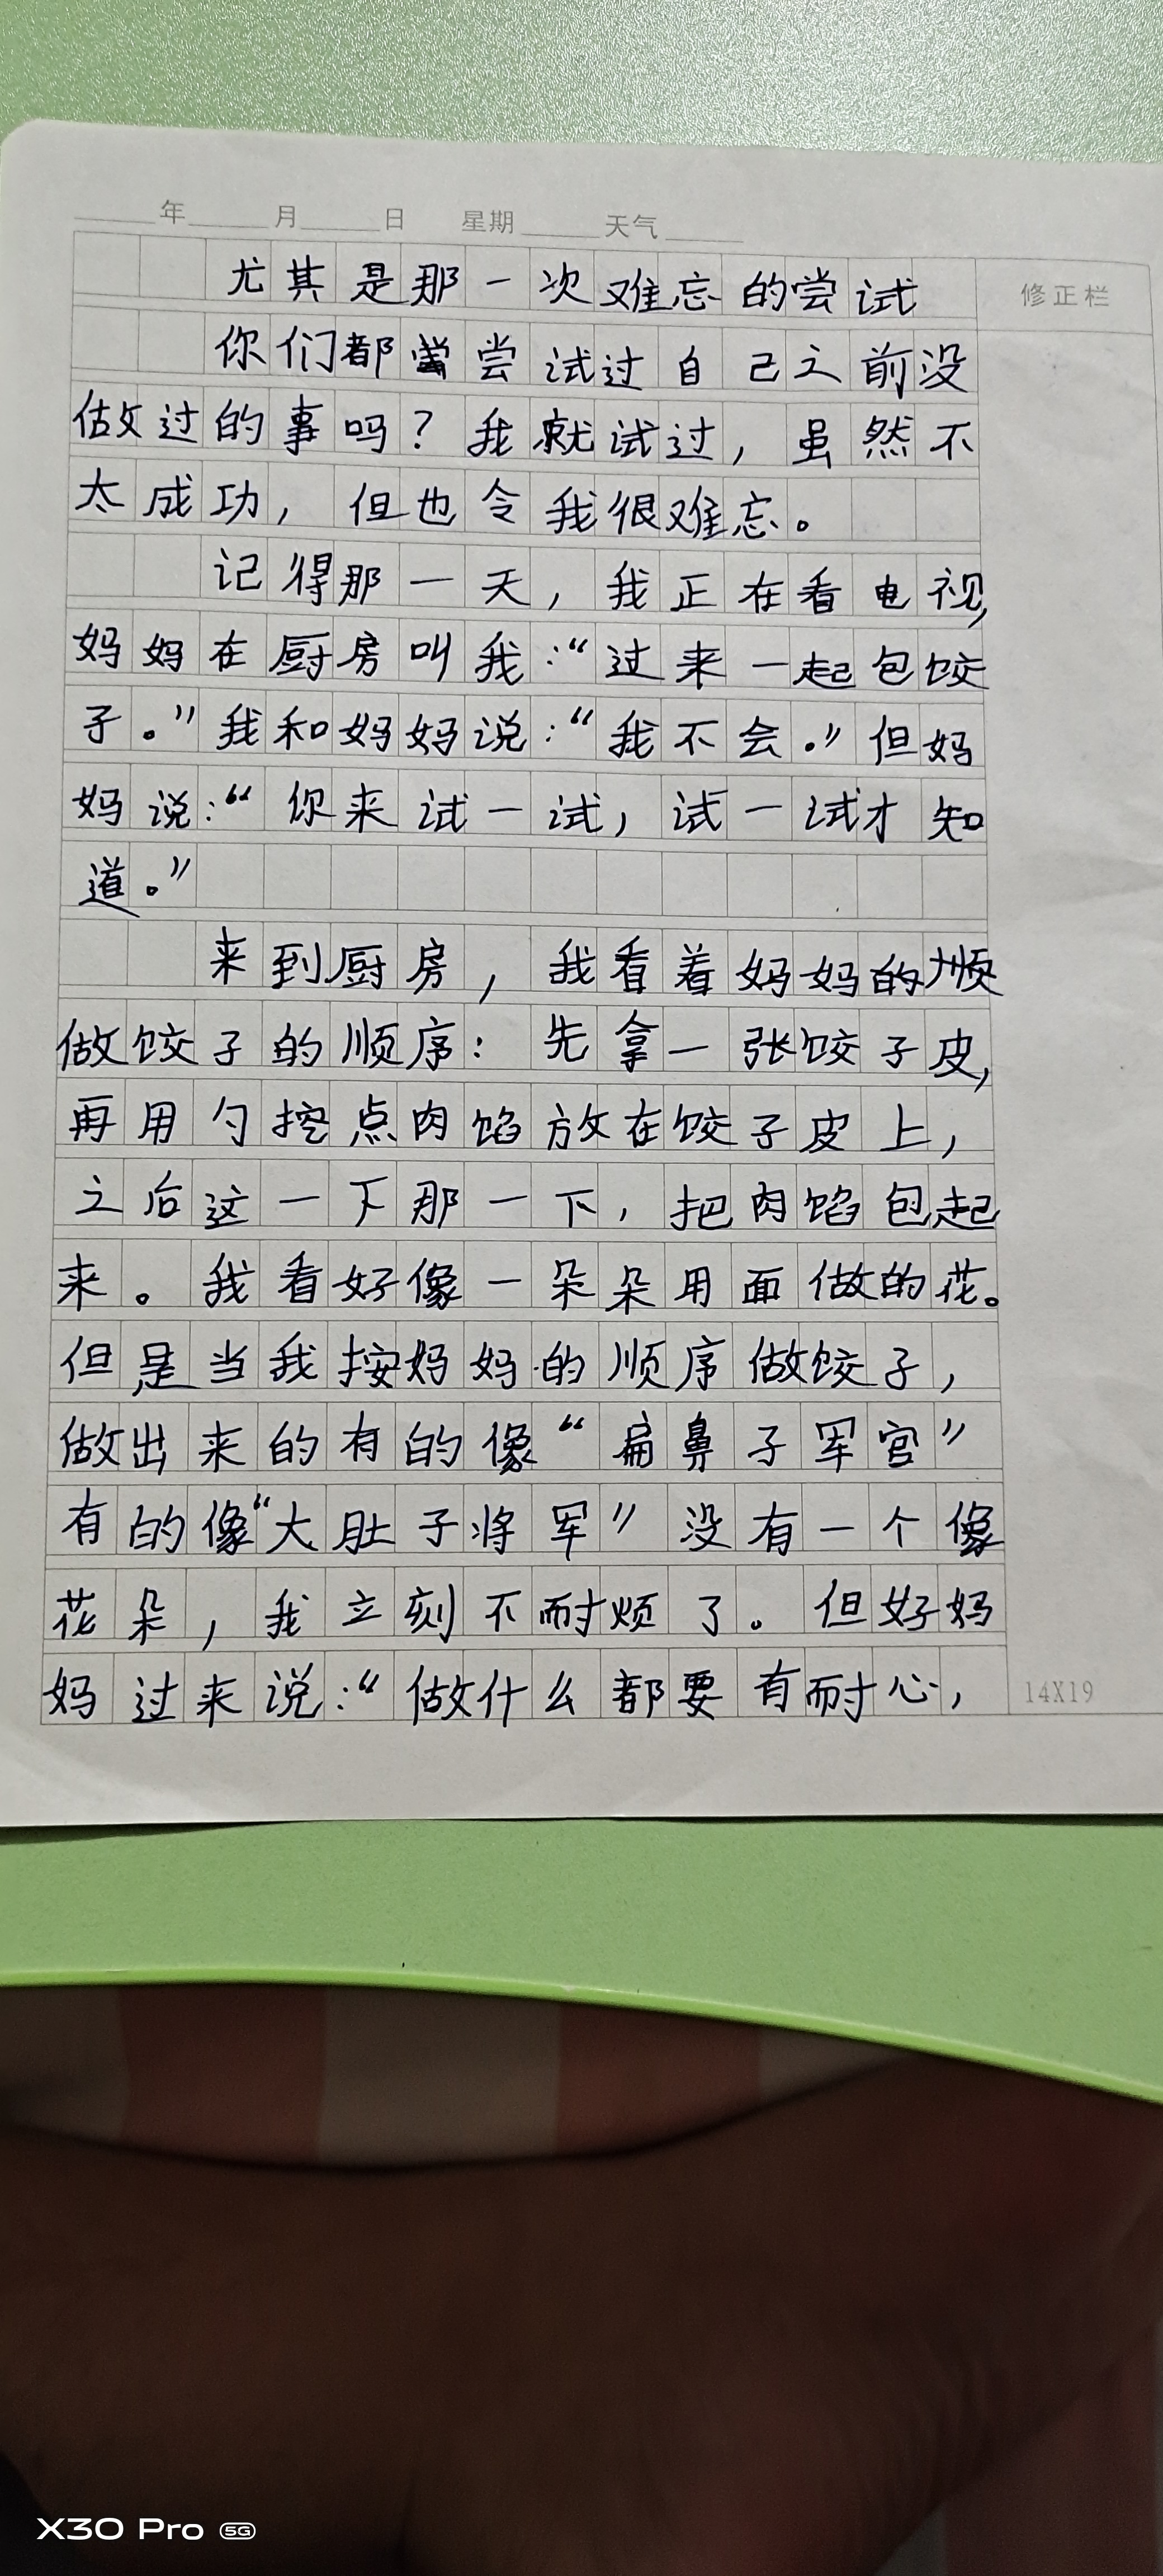 年 月 日 星期 天气
尤其是那一次难忘的尝试
修正栏
你们都尝尝试过自己之前没
做过的事吗？我就试过，虽然不
太成功，但也令我很难忘。
记得那一天，我正在看电视，
妈妈在厨房叫我：“过来一起包饺
子。”我和妈妈说：“我不会。”但妈
妈说：“你来试一试，试一试才知
道。”
来到厨房，我看着妈妈的顺
做饺子的顺序：先拿一张饺子皮，
再用勺挖点肉馅放在饺子皮上，
之后这一下那一下，把肉馅包起
来。我看好像一朵朵用面做的花。
但是当我按妈妈的顺序做饺子，
做出来的有的像“扁鼻子军官”
有的像“大肚子将军”没有一个像
花朵，我立刻不耐烦了。但好妈
妈过来说：“做什么都要有耐心，
14X19
X30 Pro 5G